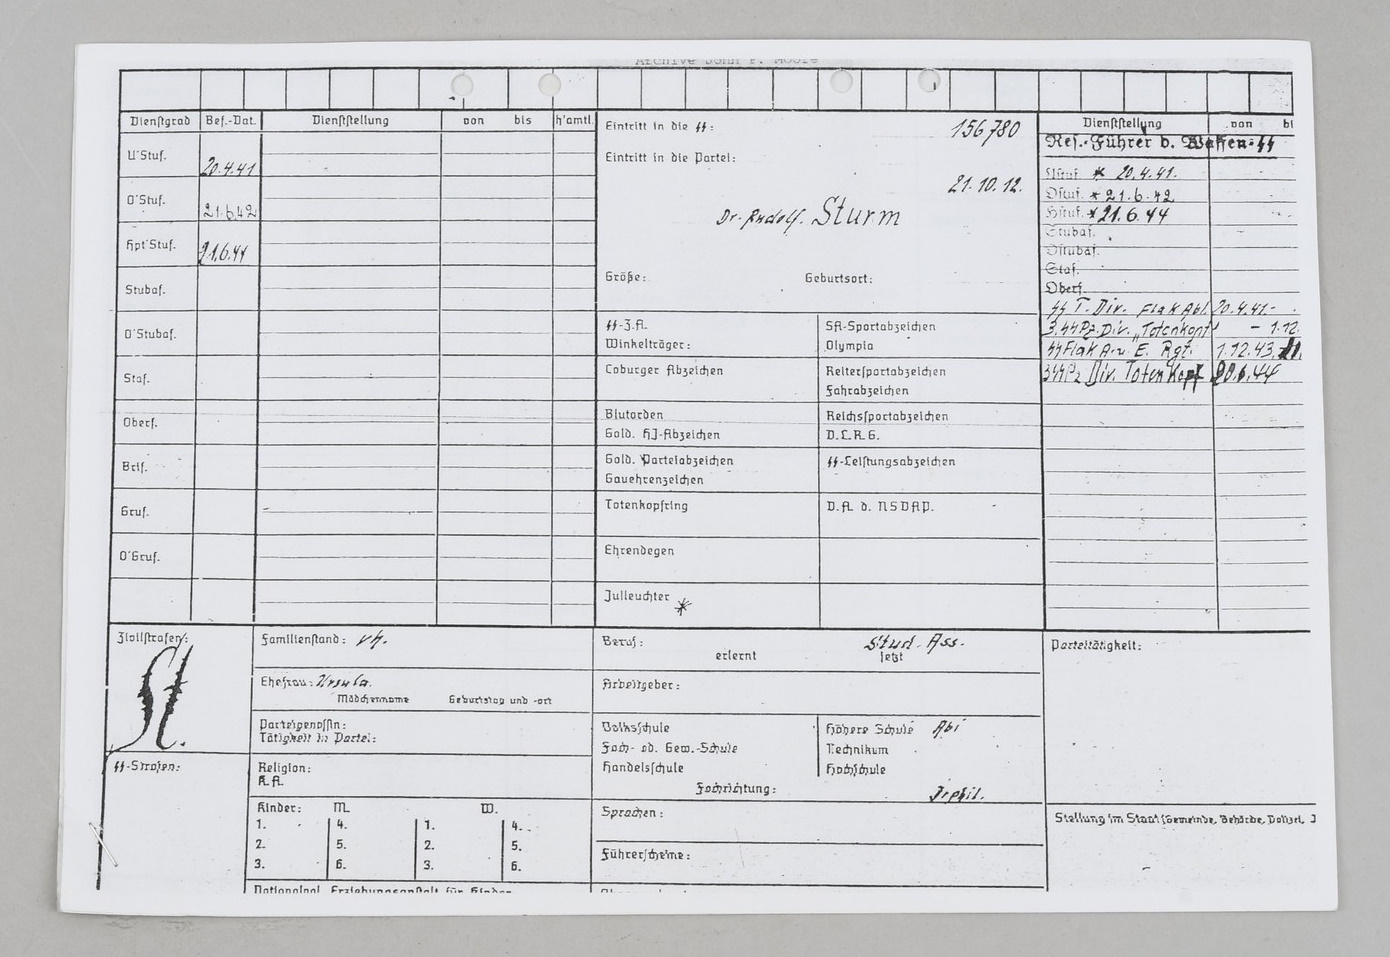 Archive John P. Moore
Dienstgrad Bef.-Dat. Dienststellung von bis h'amtl.
U'Stuf. 20.4.41
O'Stuf. 21.6.42
Hpt'Stuf. 21.6.44
Stubaf.
O'Stubaf.
Staf.
Oberf.
Brif.
Gruf.
O'Gruf.
Eintritt in die SS: 156780
Eintritt in die Partei:
21.10.12.
Dr. Rudolf Sturm
Größe: Geburtsort:
SS-Z.A. SA-Sportabzeichen
Winkelträger: Olympia
Coburger Abzeichen Reitersportabzeichen
Fahrabzeichen
Blutorden Reichssportabzeichen
Gold. HJ-Abzeichen D.L.R.G.
Gold. Parteiabzeichen SS-Leistungsabzeichen
Gauehrenzeichen
Totenkopfring D.A. d. NSDAP.
Ehrendegen
Julleuchter *
Dienststellung von bi
Res.-Führer d. Waffen-SS
Ustuf. * 20.4.41.
Ostuf. * 21.6.42
Hstuf. * 21.6.44
Stubaf.
Ostubaf.
Staf.
Oberf.
SS T. Div. Flak Abt. 20.4.41-
3.SS Pz. Div. „Totenkopf" - 1.12.
SS Flak A. u. E. Rgt. 1.12.43
3 SS Pz Div. Totenkopf 20.6.44
Zivilstrafen:
SS-Strafen:
Familienstand: vh.
Ehefrau: Ursula
Mädchenname Geburtstag und -ort
Parteigenossin:
Tätigkeit in Partei:
Religion:
K.A.
Kinder: M. W.
1. 4. 1. 4.
2. 5. 2. 5.
3. 6. 3. 6.
Nationalpol. Erziehungsanstalt für Kinder
Beruf: Stud. Ass.
erlernt jetzt
Arbeitgeber:
Volksschule Höhere Schule Abi
Fach- od. Gew.-Schule Technikum
Handelsschule Hochschule
Fachrichtung: Dr phil.
Sprachen:
Führerscheine:
Parteitätigkeit:
Stellung im Staat (Gemeinde, Behörde, Polizei, J